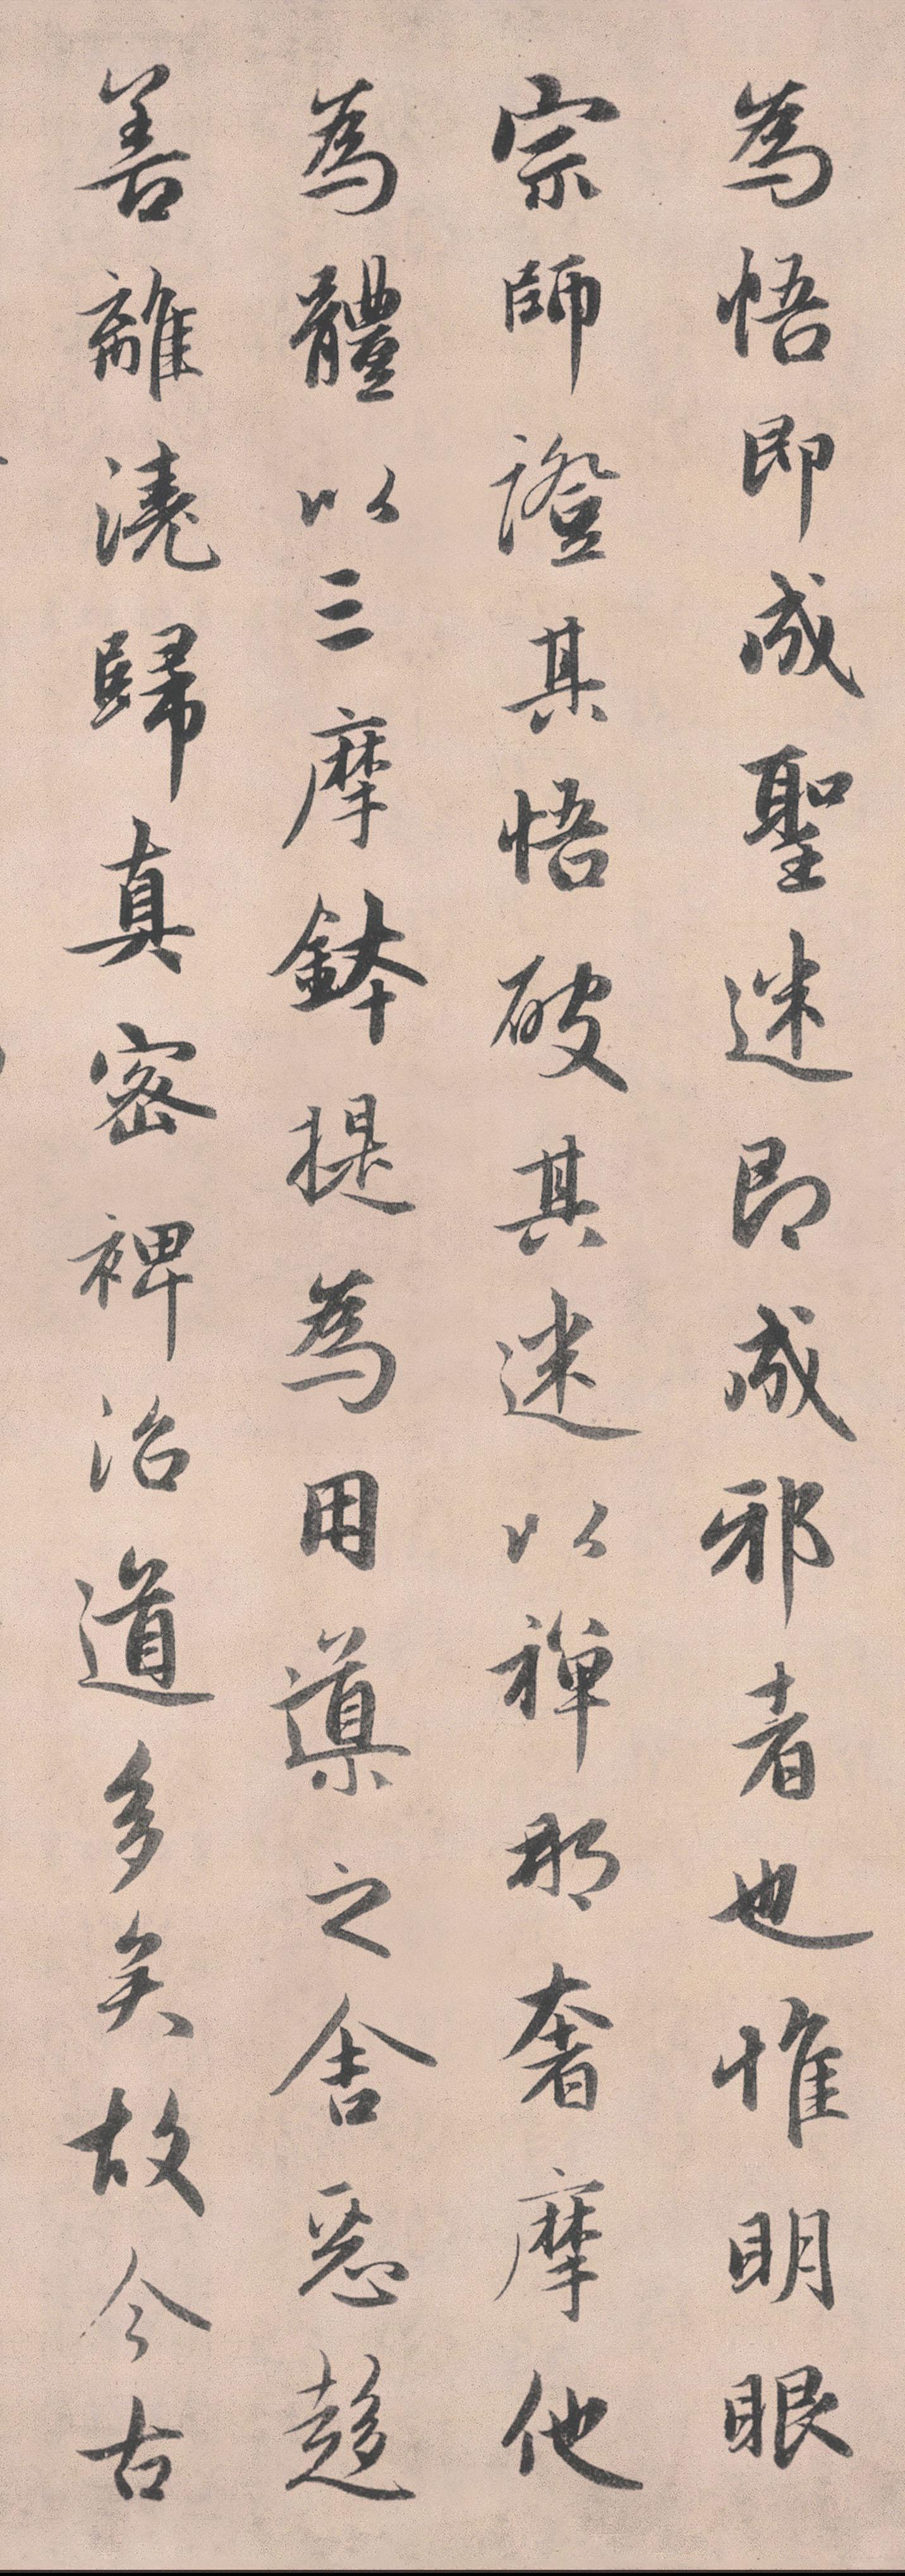 為悟即成聖迷即成邪者也惟明眼
宗師證其悟破其迷以禪那奢摩他
為體以三摩鉢提為用導之舍惡趨
善離澆歸真密裨治道多矣故今古